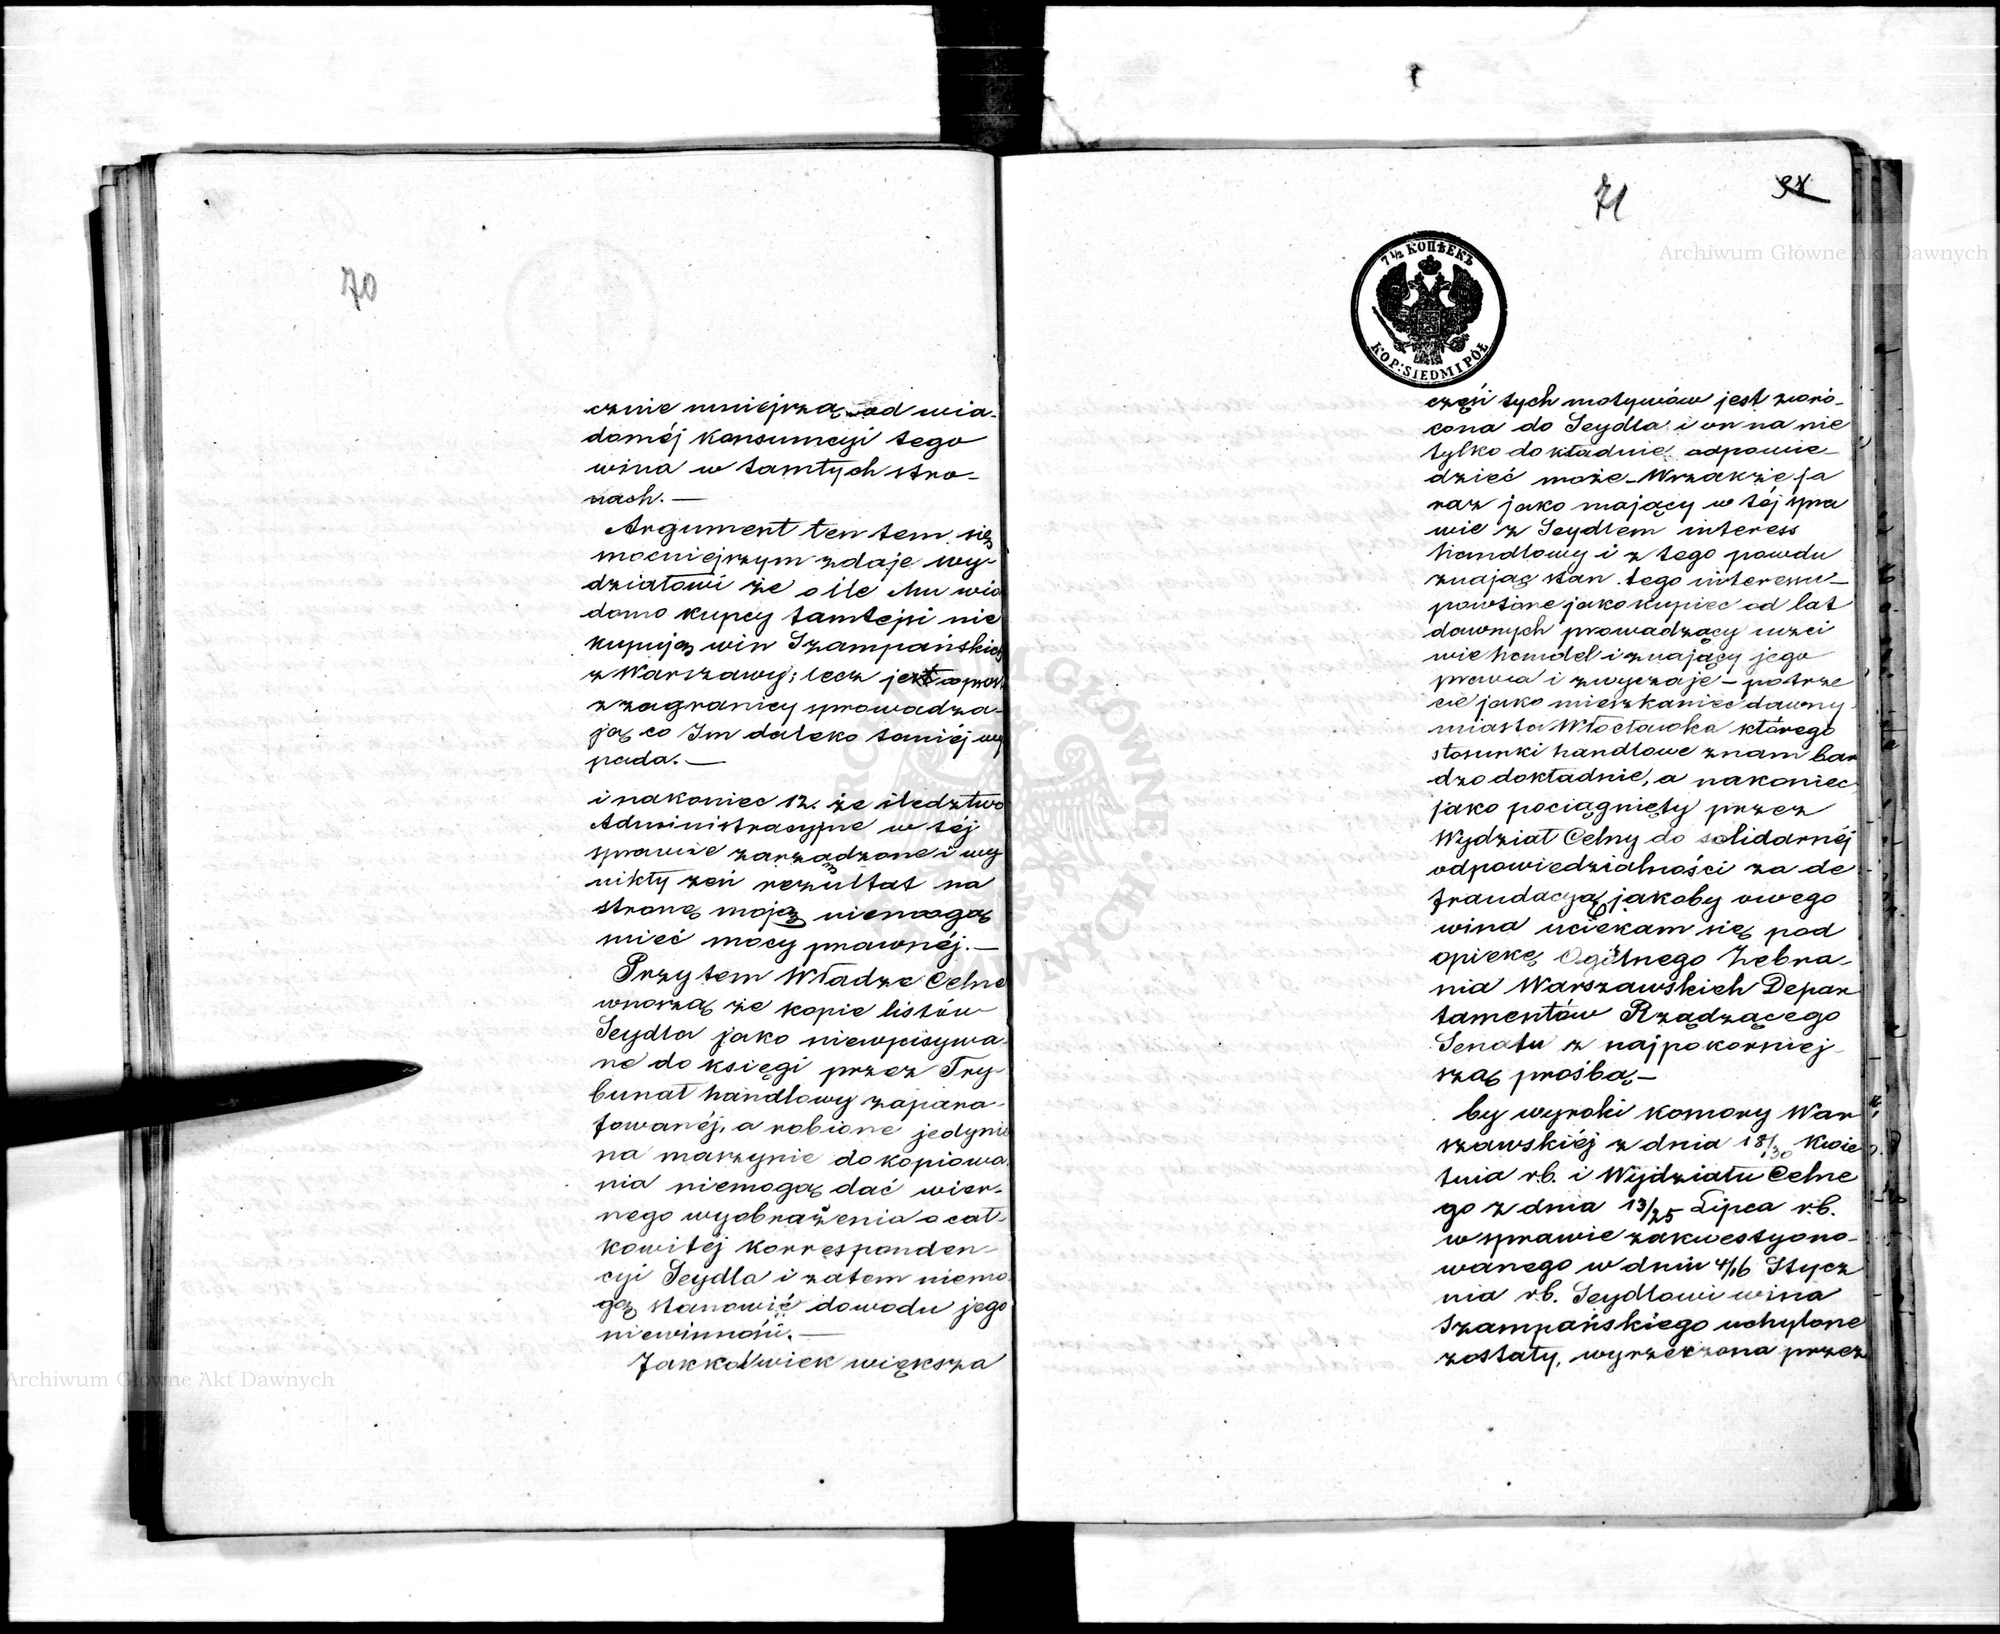 70
cznie mniejszą od wia-
domej konsumcyi tego
wina w tamtych stro-
nach. —
Argument ten tem się
mocniejszym zdaje wy-
działowi że o ile Mu wia
domo kupcy tamtejsi nie
kupują win Szampańskich
z Warszawy; lecz je wprost
z zagranicy sprowadza-
ją, co Im daleko taniéj wy
pada. —
i nakoniec 12. że śledztwo
Administracyjne w téj
sprawie zarządzone i wy
nikły zeń rezultat na
stronę moją niemogą
mieć mocy prawnéj. —
Przytem Władze Celne
wnoszą że kopie listów
Seydla jako niewpisywa-
ne do księgi przez Try-
bunał handlowy zapara-
fowanéj, a robione jedynie
na maszynie do kopiowa
nia niemogą dać wier-
nego wyobrażenia o cał-
kowitéj korresponden-
cyi Seydla i zatem niemo
gą stanowić dowodu jego
niewinności. —
Jakkolwiek większa
71
Archiwum Główne Akt Dawnych
7 1/2 КОПѢЕКЪ
KOP: SIEDM I PÓŁ
część tych motywów jest zwró-
cona do Seydla i on na nie
tylko dokładnie odpowie-
dzieć może — Wszakże ja
raz jako mający w téj spra
wie z Seydlem interess
handlowy i z tego powodu
znając stan tego interesu —
powtóre jako kupiec od lat
dawnych prowadzący uczci
wie handel i znający jego
prawa i zwyczaje — po trze
cie jako mieszkaniec dawny
miasta Włocławka którego
stosunki handlowe znam bar
dzo dokładnie, a nakoniec
jako pociągnięty przez
Wydział Celny do solidarnéj
odpowiedzialności za de
fraudacyą jakoby owego
wina uciekam się pod
opiekę Ogólnego Zebra-
nia Warszawskich Depar
tamentów Rządzącego
Senatu z najpokorniej-
szą prośbą —
by wyroki komory War
szawskiéj z dnia 18/30 Kwie
tnia r.b. i Wydziału Celne
go z dnia 13/25 Lipca r.b.
w sprawie zakwestyono-
wanego w dniu 4/16 Stycz
nia r.b. Seydlowi wina
Szampańskiego uchylone
zostały, wyrzeczona przez
Archiwum Główne Akt Dawnych